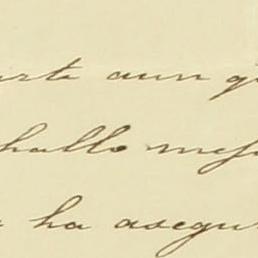 arte aun q
hallo mej
ha asegu